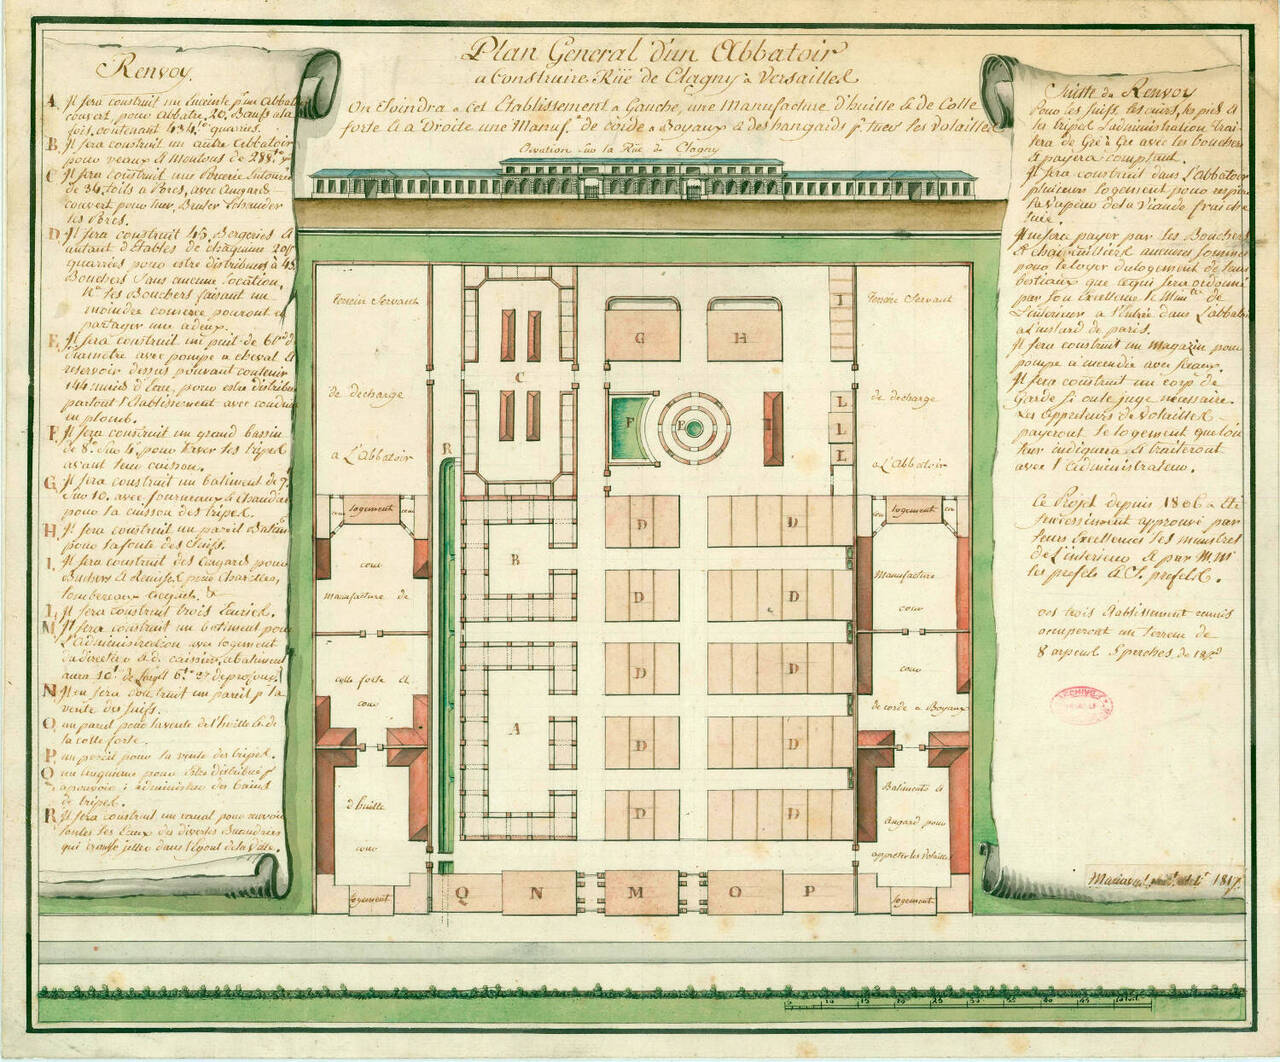 Plan General d'un Abbatoir
a Construire Rüe de Clagny a Versailles
On Joindra a cet Etablissement a Gauche, une Manufacture d'huille & de Colle
forte & a Droite une Manuf.e de corde a Boyaux & des hangards p.r tuer les Volailles
Elevation sur la Rue de Clagny
Renvoy.
A Il sera construit un Enceinte d'un Abbatoir
couvert, pour Abbatre 20 Boeufs a la
fois, contenant quarrées.
B Il sera construit un autre Abbatoir
pour veaux & Moutons de 288
C Il sera Construit une Porcerie Entourée
de 34 toits a Porcs, avec Angard
couvert pour tuer, Bruler Echauder
les Porcs.
D Il sera construit 45 Bergeries &
autant d'Etables de chaquune 20
quarrées pour estre distribués à 45
Bouchers Sans aucune location,
les Bouchers faisant un
moindre comerce pouront
partager une a deux.
E Il sera construit un puit de
diametre avec pompe a cheval &
reservoir dessus pouvant contenir
144 muids d'Eau, pour estre distribué
partout l'Etablissement avec conduits
en plomb.
F Il sera construit un grand bassin
de 8 Sur 4 pour laver les tripes
avant leur cuisson.
G Il sera construit un batiment de 9
Sur 10 avec fourneaux & chaudieres
pour la cuisson des tripes.
H Il sera construit un pareil Batiment
pour la fonte des Suifs.
I Il sera construit des Engards pour
Buchers & Remises pour Charettes,
tombereaux
L Il sera construit trois Ecuries.
M Il sera construit un batiment pour
L'administration avec logement
du directeur & d. caissier, ce batiment
aura 10 de long & 6
N Il en sera construit un pareil p.r la
vente des Suifs.
O un pareil pour la vente de l'huille & de
la colle forte.
P un pareil pour la vente des tripes.
Q un cinquieme pour estre distribué
administrer des bains
de tripes.
R Il sera construit un canal pour recevoir
toutes les Eaux des diverses Buanderies
qui se jette dans l'Egout de la Ville.
Suitte du Renvoy
Pour les suifs, les cuirs, les pieds &
les tripes L'administration trai-
tera de Gré à Gré avec les bouchers
& payera comptant.
Il sera construit dans l'abbatoir
plusieurs logement pour
la vapeur de la Viande fraiche
tuée.
Il ne sera payer par les Bouchers
& chaircuitiers aucunes sommes
pour le loyer du logement de leurs
bestiaux que ce qui sera ordonné
par son Excellence le Ministre de
L'interieur a l'Entrée dans L'abbatoir
a L'instard de paris.
Il sera construit un Magazin pour
pompe a incendie avec Seaux.
Il sera construit un corp de
Garde si on le juge nécessaire.
Les Appreteurs de volailles
payeront le logement que l'on
leur indiquera & traiteront
avec l'administrateur.
Ce Projet depuis 1806 a été
Successivement approuvé par
leurs Excellences les ministres
de L'interieur & par M.M.
les prefets & S. prefets.
ces trois Etablissement reunis
occuperont un terrein de
8 arpens 5 perches de
ARCHIVES
1817
terrein Servant
de decharge
a L'Abbatoir
terrein Servant
de decharge
a L'Abbatoir
G
H
I
C
F
E
I
L
L
L
R
B
A
D
D
D
D
D
D
D
D
D
D
logement
cour
cour
cour
manufacture de
colle forte et
cour
d'huille
cour
logement
logement
cour
cour
Manufacture
cour
cour
de corde a Boyaux
Batiments &
angard pour
appreter les Volailles
logement
Q
N
M
O
P
5
10
15
20
25
30
35
40
45